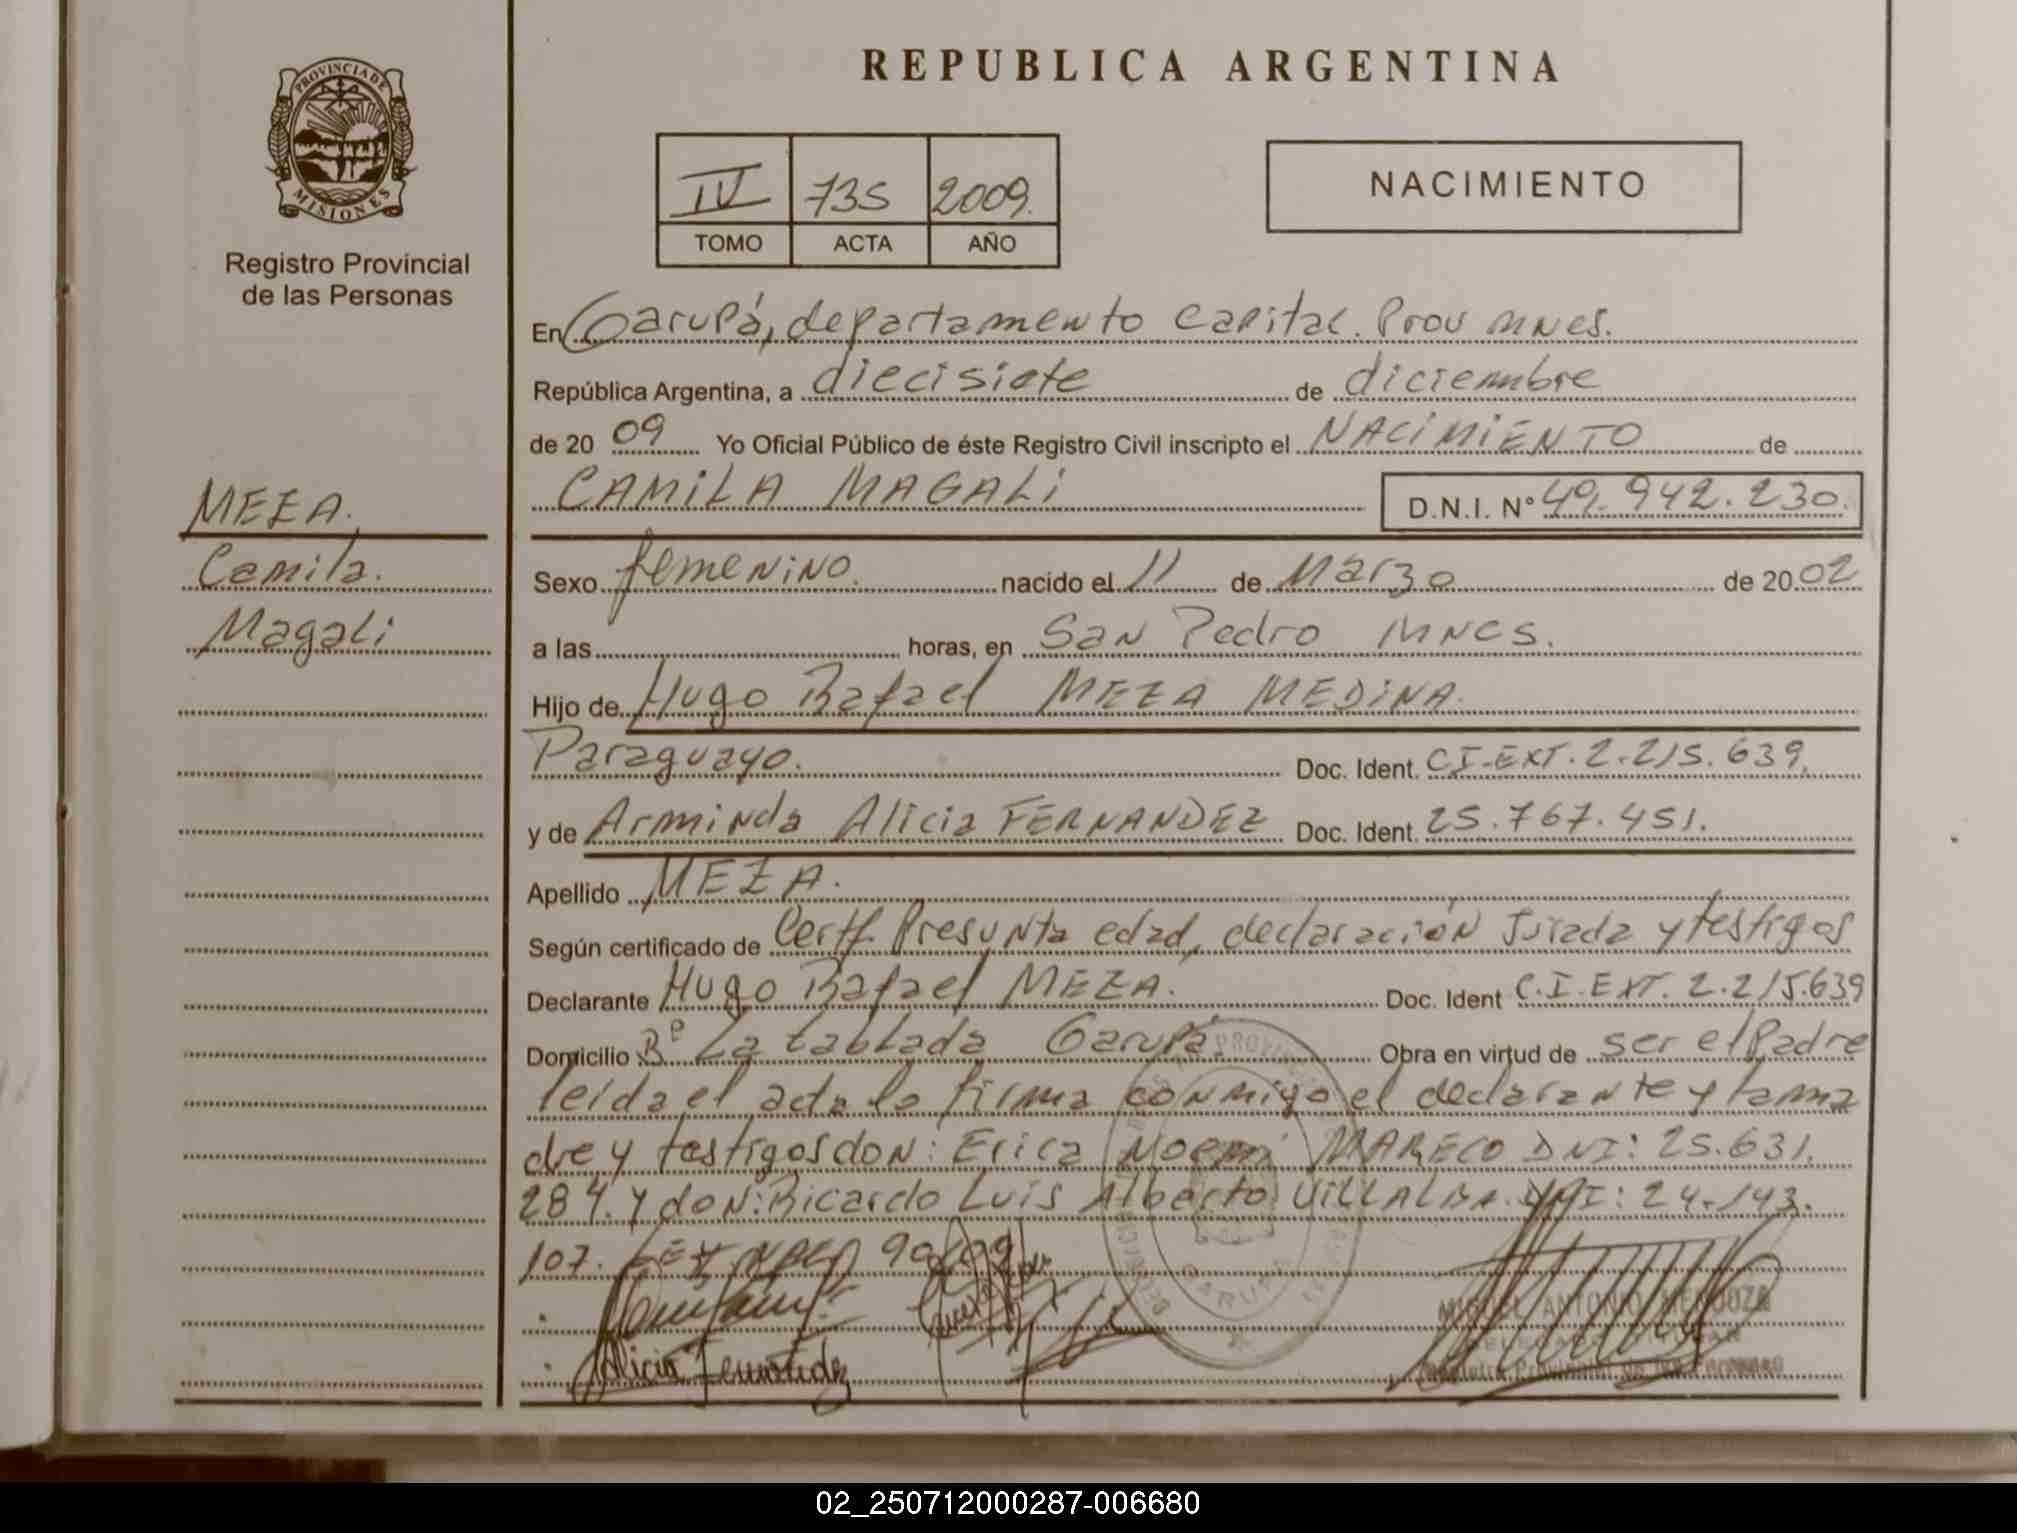 REPUBLICA ARGENTINA
PROVINCIA DE
MISIONES
Registro Provincial
de las Personas
IV 735 2009.
TOMO ACTA AÑO
NACIMIENTO
En Garupá, departamento Capital. Prov Mnes.
República Argentina, a diecisiete de diciembre
de 20 09 Yo Oficial Público de éste Registro Civil inscripto el NACIMIENTO de
CAMILA MAGALI D.N.I. N° 49.942.230.
MEZA.
Camila.
Magali
Sexo femenino. nacido el 11 de Marzo de 20 02
a las horas, en San Pedro Mnes.
Hijo de Hugo Rafael MEZA MEDINA.
Paraguayo. Doc. Ident. CI-EXT. 2.215.639.
y de Arminda Alicia FERNANDEZ Doc. Ident. 25.767.451.
Apellido MEZA.
Según certificado de Certf. Presunta edad, declaración Jurada y testigos
Declarante Hugo Rafael MEZA. Doc. Ident C.I.EXT. 2.215.639
Domicilio Bº La tablada Garupá. Obra en virtud de ser el Padre
leída el acta la firma conmigo el declarante y la ma
dre y testigos don: Erica Noemi MARECO DNI: 25.631.
284. y don: Ricardo Luis Alberto VILLALBA. DNI: 24.143.
107.
Alicia Fernandez
MIGUEL ANTONIO MENDOZA
Registro Provincial de las Personas
GARUPA
02_250712000287-006680